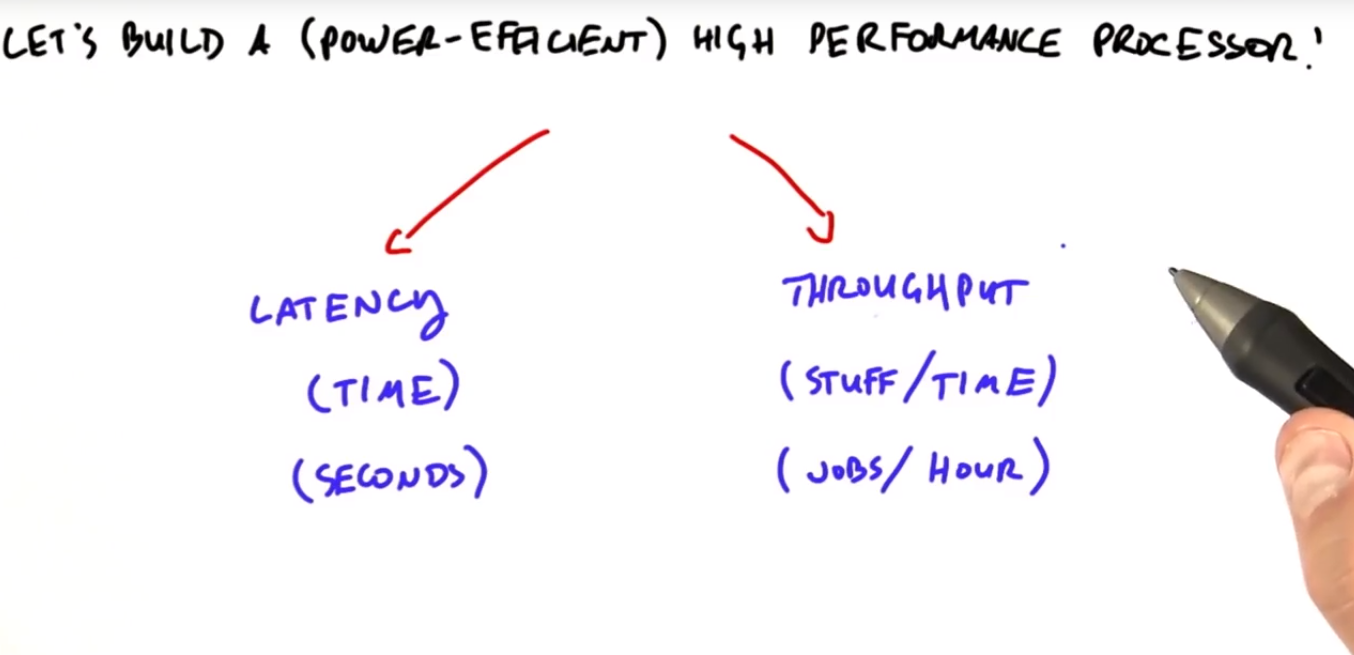 LET'S BUILD A (POWER-EFFICIENT) HIGH PERFORMANCE PROCESSOR!
LATENCY
(TIME)
(SECONDS)
THROUGHPUT
(STUFF/TIME)
(JOBS/HOUR)